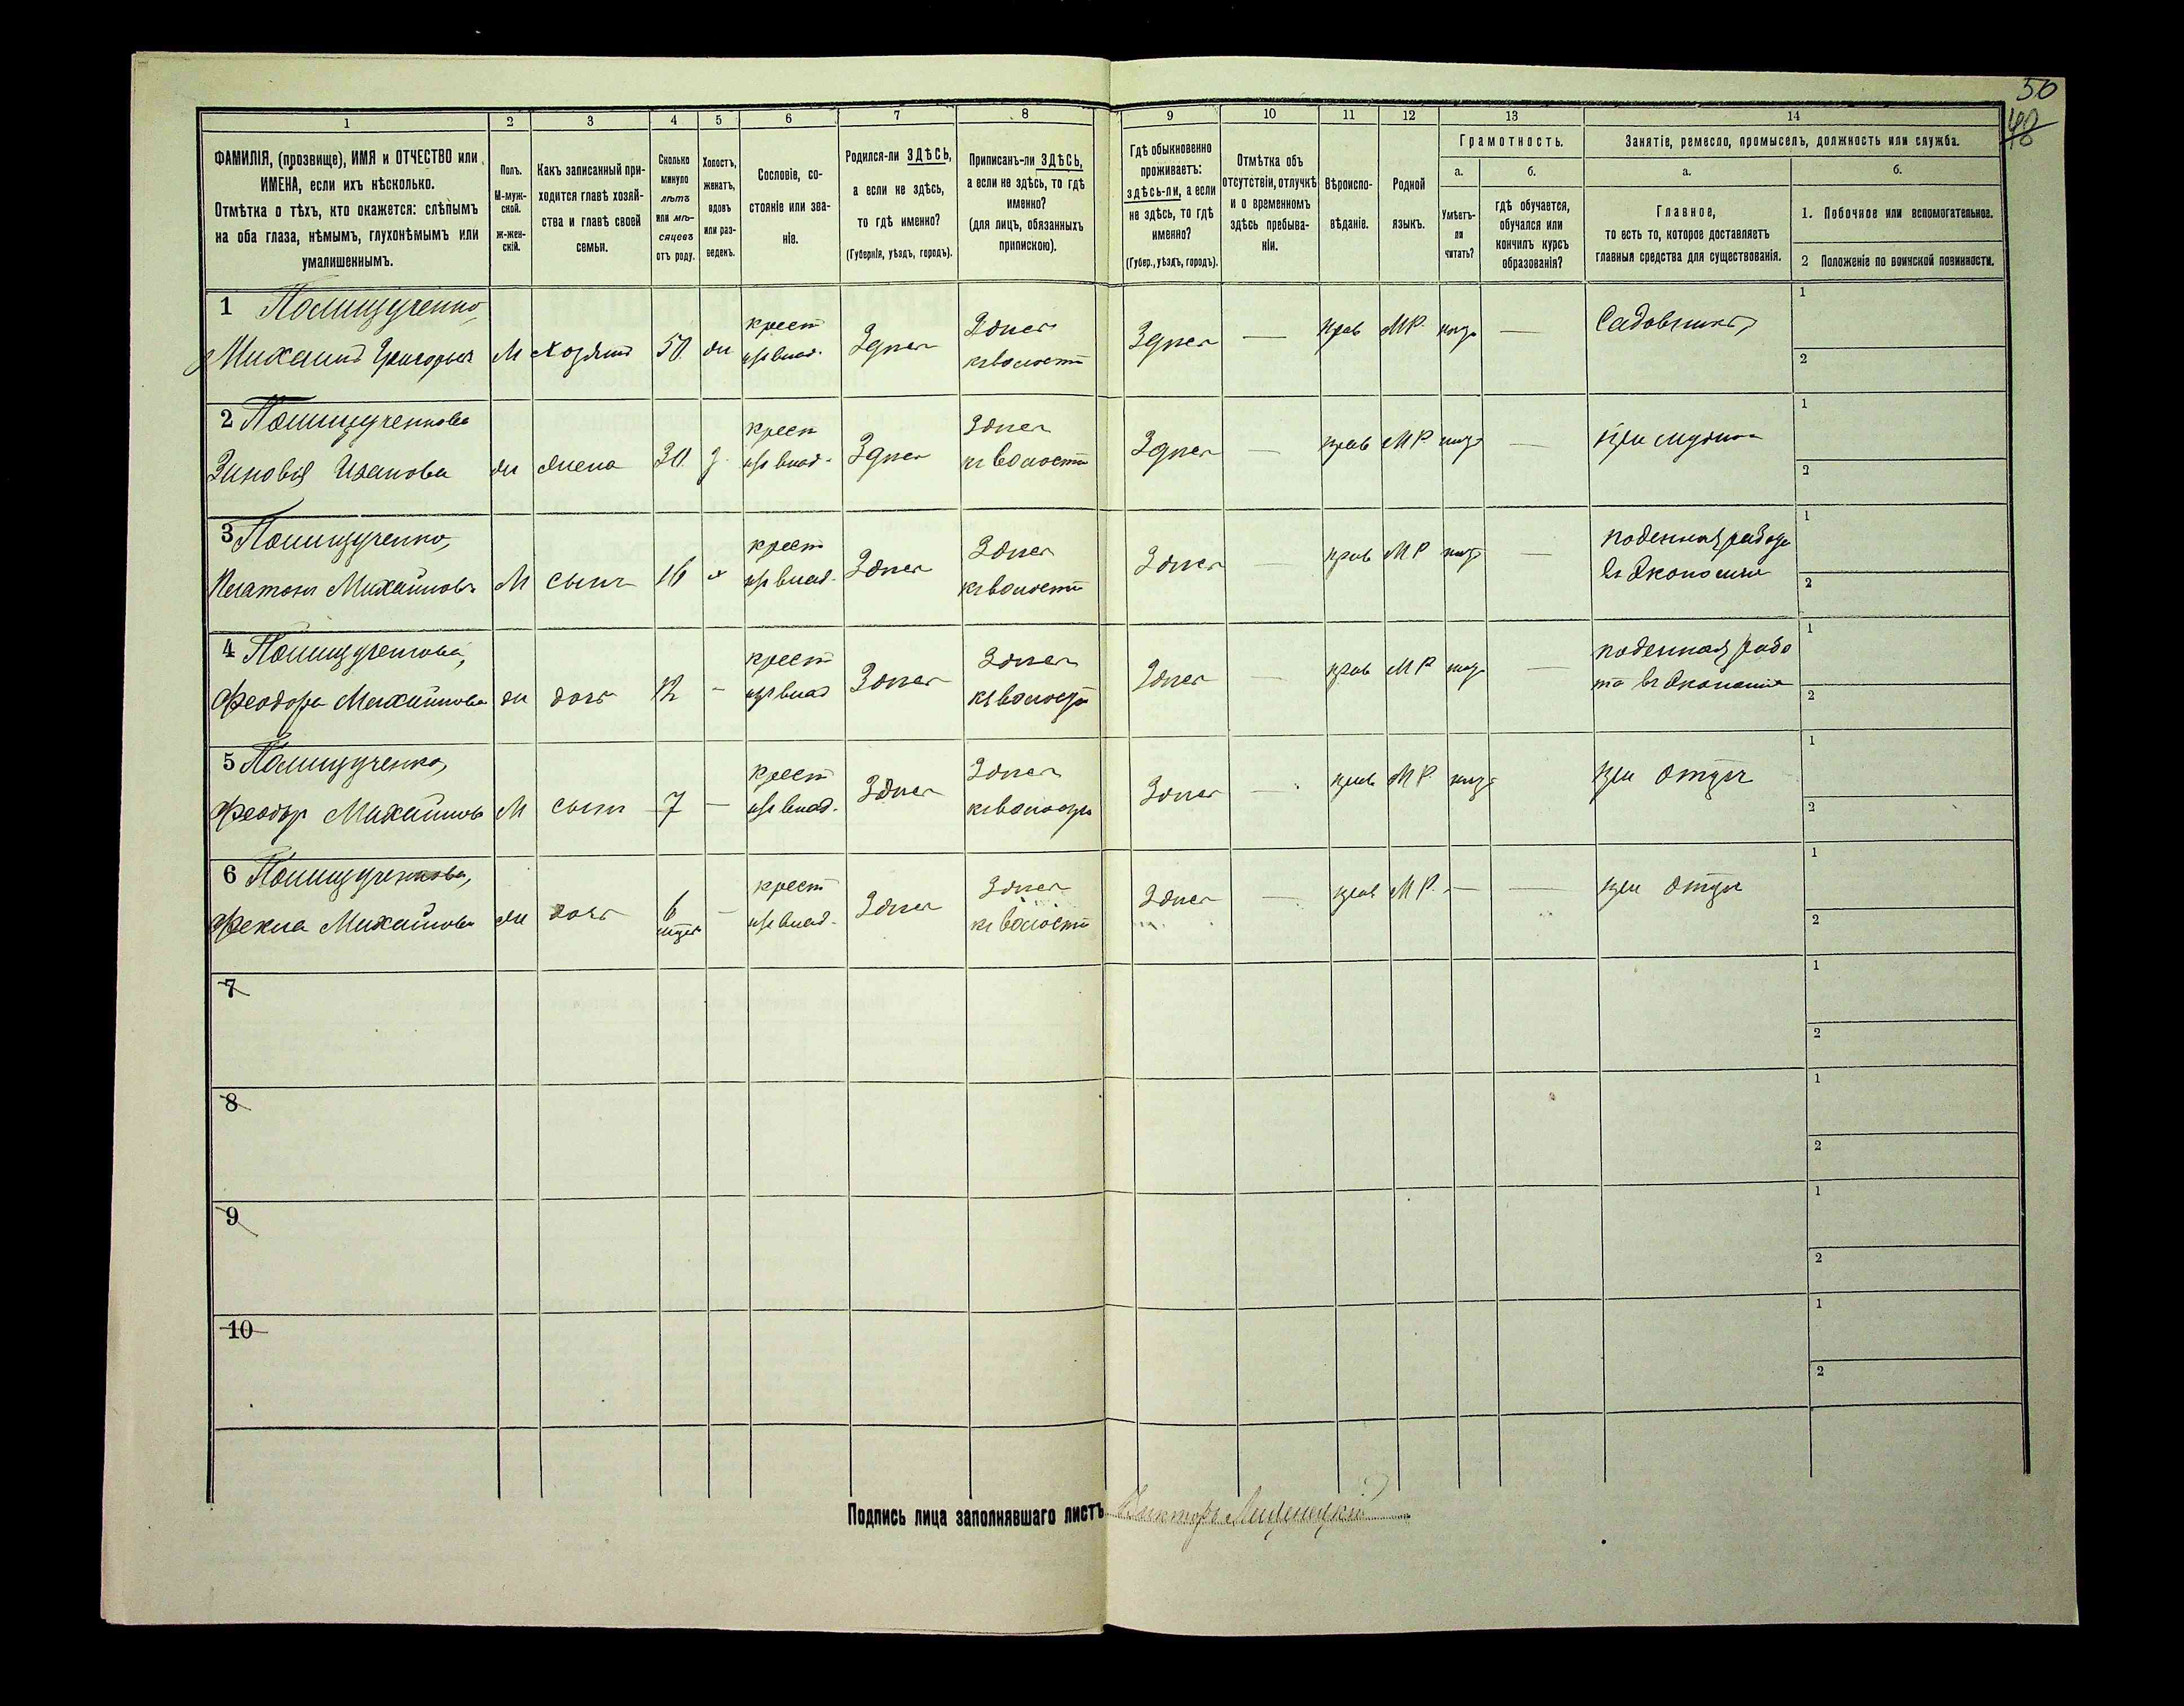 50
48
1 2 3 4 5 6 7 8 9 10 11 12 13 14
ФАМИЛІЯ, (прозвище), ИМЯ и ОТЧЕСТВО или
ИМЕНА, если ихъ нѣсколько.
Отмѣтка о тѣхъ, кто окажется: слѣпымъ
на оба глаза, нѣмымъ, глухонѣмымъ или
умалишеннымъ.
Полъ.
М-муж-
ской.
ж-жен-
скій.
Какъ записанный при-
ходится главѣ хозяй-
ства и главѣ своей
семьи.
Сколько
минуло
лѣтъ
или мѣ-
сяцевъ
отъ роду.
Холостъ,
женатъ,
вдовъ
или раз-
веденъ.
Сословіе, со-
стояніе или зва-
ніе.
Родился-ли ЗДѢСЬ,
а если не здѣсь,
то гдѣ именно?
(Губернія, уѣздъ, городъ).
Приписанъ-ли ЗДѢСЬ,
а если не здѣсь, то гдѣ
именно?
(для лицъ, обязанныхъ
припискою).
Гдѣ обыкновенно
проживаетъ:
здѣсь-ли, а если
не здѣсь, то гдѣ
именно?
(Губер., уѣздъ, городъ).
Отмѣтка объ
отсутствіи, отлучкѣ
и о временномъ
здѣсь пребыва-
ніи.
Вѣроиспо-
вѣданіе.
Родной
языкъ.
Грамотность.
а.
Умѣетъ-
ли
читать?
б.
гдѣ обучается,
обучался или
кончилъ курсъ
образованія?
Занятіе, ремесло, промыселъ, должность или служба.
а.
Главное,
то есть то, которое доставляетъ
главныя средства для существованія.
б.
1. Побочное или вспомогательное.
2 Положеніе по воинской повинности.
1 Полищученко,
Михаилъ Григорьев М хозяинъ 50 жн крест
изъ влад. Здѣсь Здѣсь
къ волости Здѣсь — прав МР — Садовникъ 1
2
2 Полищученкова
Зиновія Иванова жн жена 30 з крест
изъ влад. Здѣсь Здѣсь
къ волости Здѣсь — прав МР — при мужѣ 1
2
3 Полищученко,
Платонъ Михайловъ М сынъ 16 х крест
изъ влад. Здѣсь Здѣсь
къ волости Здѣсь — прав МР — поденная работа
въ экономіи 1
2
4 Полищученкова,
Феодора Михайлова жн дочь 12 — крест
изъ влад Здѣсь Здѣсь
къ волости Здѣсь — прав МР — поденная рабо
та въ экономіи 1
2
5 Полищученко,
Феодор Михайловъ М сынъ 7 — крест
изъ влад. Здѣсь Здѣсь
къ волости Здѣсь — прав МР — при отцѣ 1
2
6 Полищученкова,
Фекла Михайлова жн дочь 6 — крест
изъ влад. Здѣсь Здѣсь
къ волости Здѣсь — прав МР — — при отцѣ 1
2
7 1
2
8 1
2
9 1
2
10 1
2
Подпись лица заполнявшаго листъ